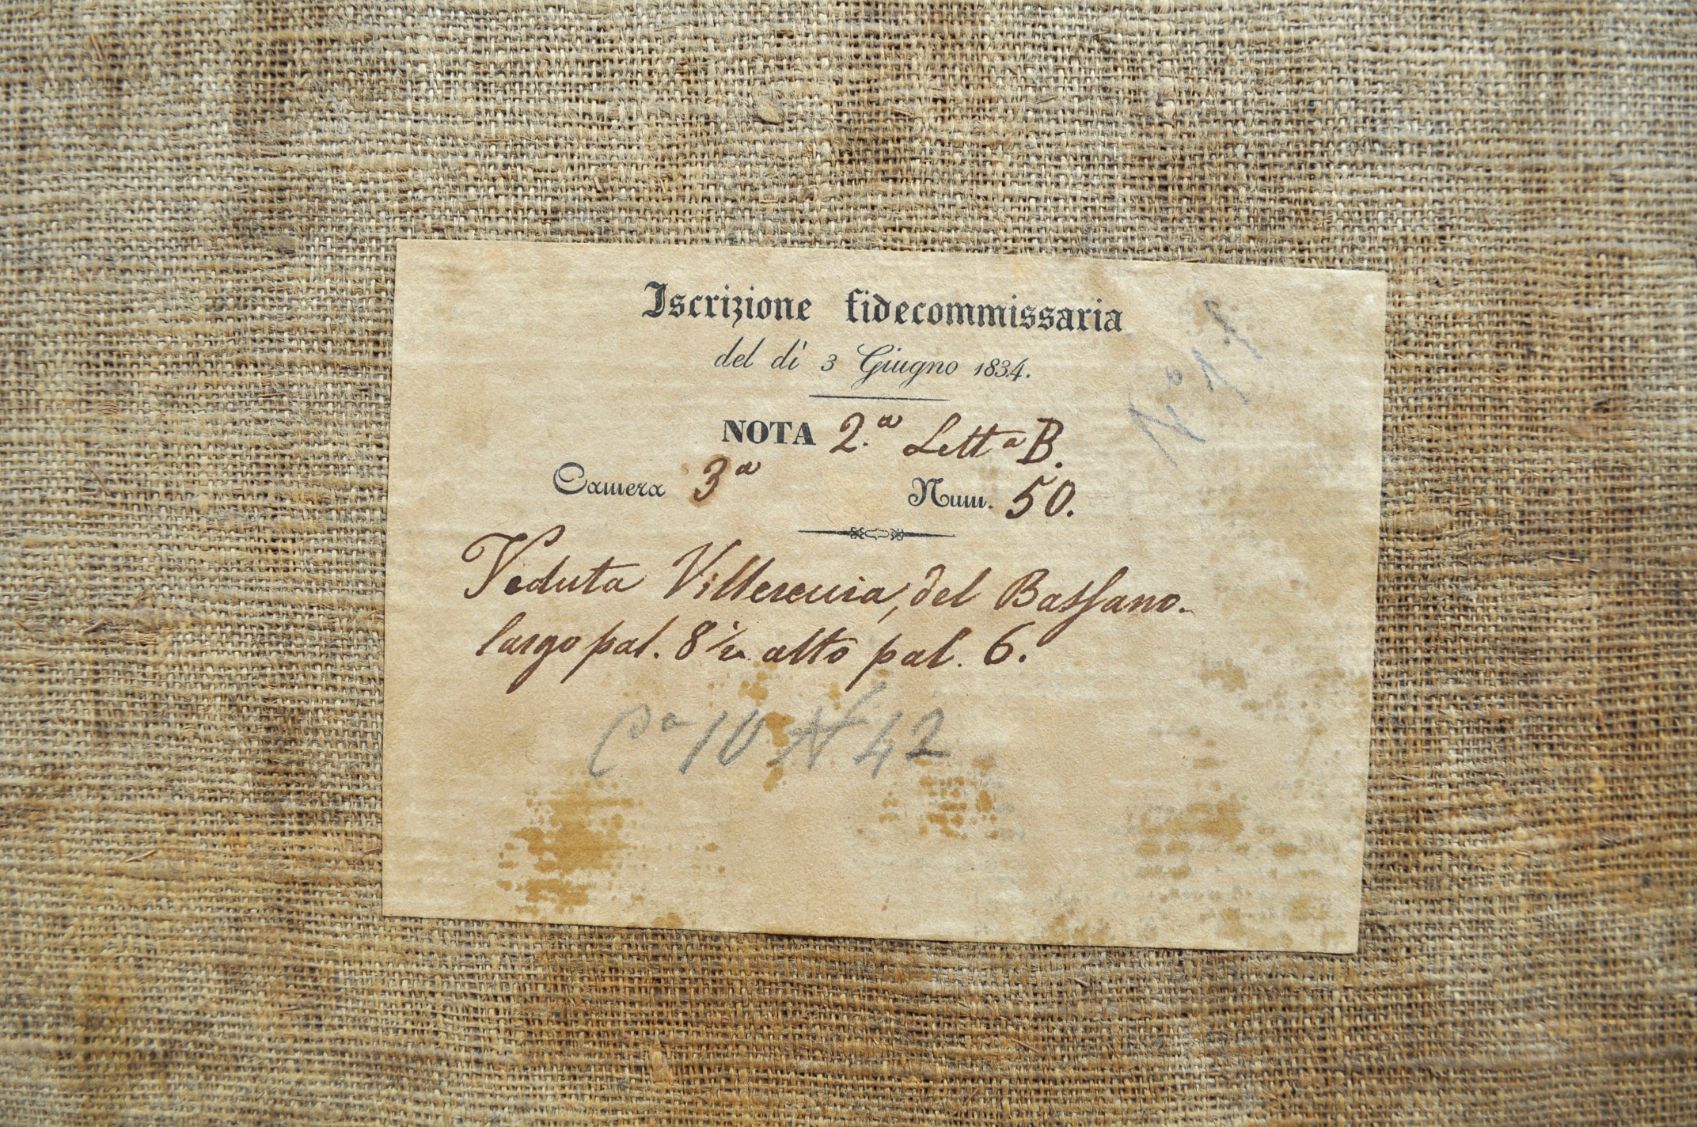 Iscrizione fidecommissaria
del dì 3 Giugno 1834.
NOTA 2.ª Lettª B.
Camera 3ª Num. 50.
Veduta Villereccia, del Bassano.
largo pal. 8 ½ alto pal. 6.
Cª 10 N 42
Nº